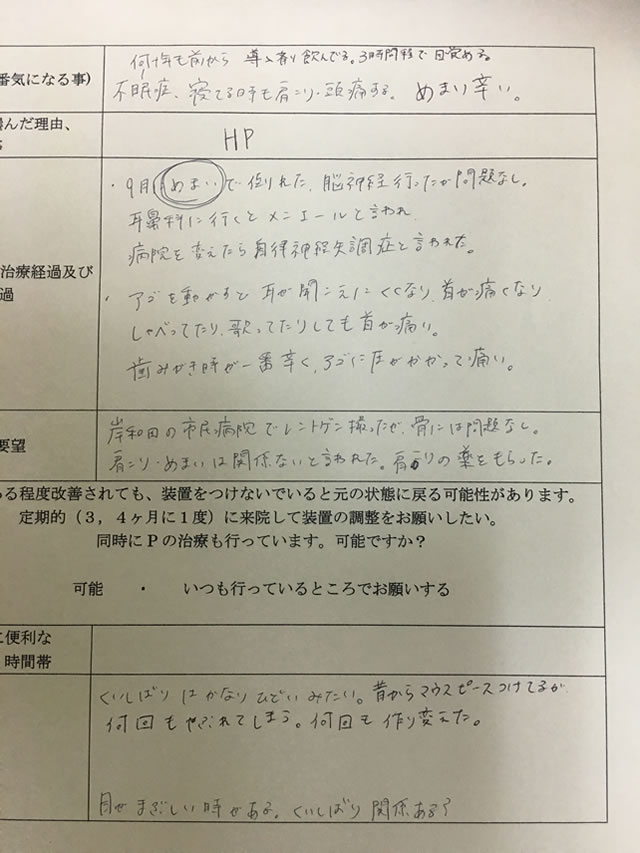 何十年も前から 導入剤飲んでる。3時間程で目覚める
番気になる事)
不眠症、寝てる時も肩こり・頭痛する。 めまい辛い。
んだ理由、
HP
・9月 めまいで倒れた、脳神経行ったが問題なし。
耳鼻科に行くとメニエールと言われ
病院を変えたら自律神経失調症と言われた。
治療経過及び
過
・アゴを動かすと耳が聞こえにくくなり、首が痛くなり
しゃべってたり、歌ってたりしても首が痛い。
歯みがき時が一番辛く、アゴに圧がかかって痛い。
要望
岸和田の市民病院でレントゲン撮ったが、骨には問題なし。
肩こり・めまいは関係ないと言われた。肩こりの薬をもらった。
る程度改善されても、装置をつけないでいると元の状態に戻る可能性があります。
定期的(3,4ヶ月に1度)に来院して装置の調整をお願いしたい。
同時にPの治療も行っています。可能ですか?
可能 ・ いつも行っているところでお願いする
に便利な
時間帯
くいしばりはかなりひどいみたい。昔からマウスピースつけてるが
何回もやぶれてしまう。何回も作り変えた。
目がまぶしい時がある。くいしばり関係ある?